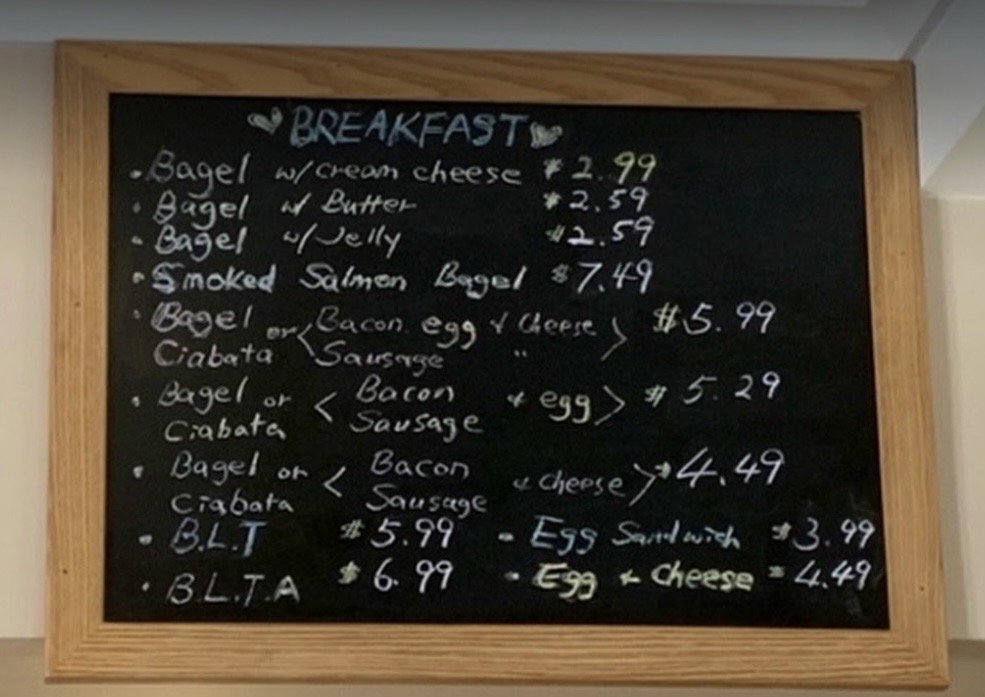 BREAKFAST
• Bagel w/ cream cheese $2.99
• Bagel w/ Butter $2.59
• Bagel w/ Jelly $2.59
• Smoked Salmon Bagel $7.49
• Bagel or < Bacon egg & Cheese > $5.99
Ciabata Sausage "
• Bagel or < Bacon & egg > $5.29
Ciabata Sausage
• Bagel or < Bacon & cheese > $4.49
Ciabata Sausage
• B.L.T $5.99 - Egg Sandwich $3.99
• B.L.T.A $6.99 - Egg & Cheese $4.49